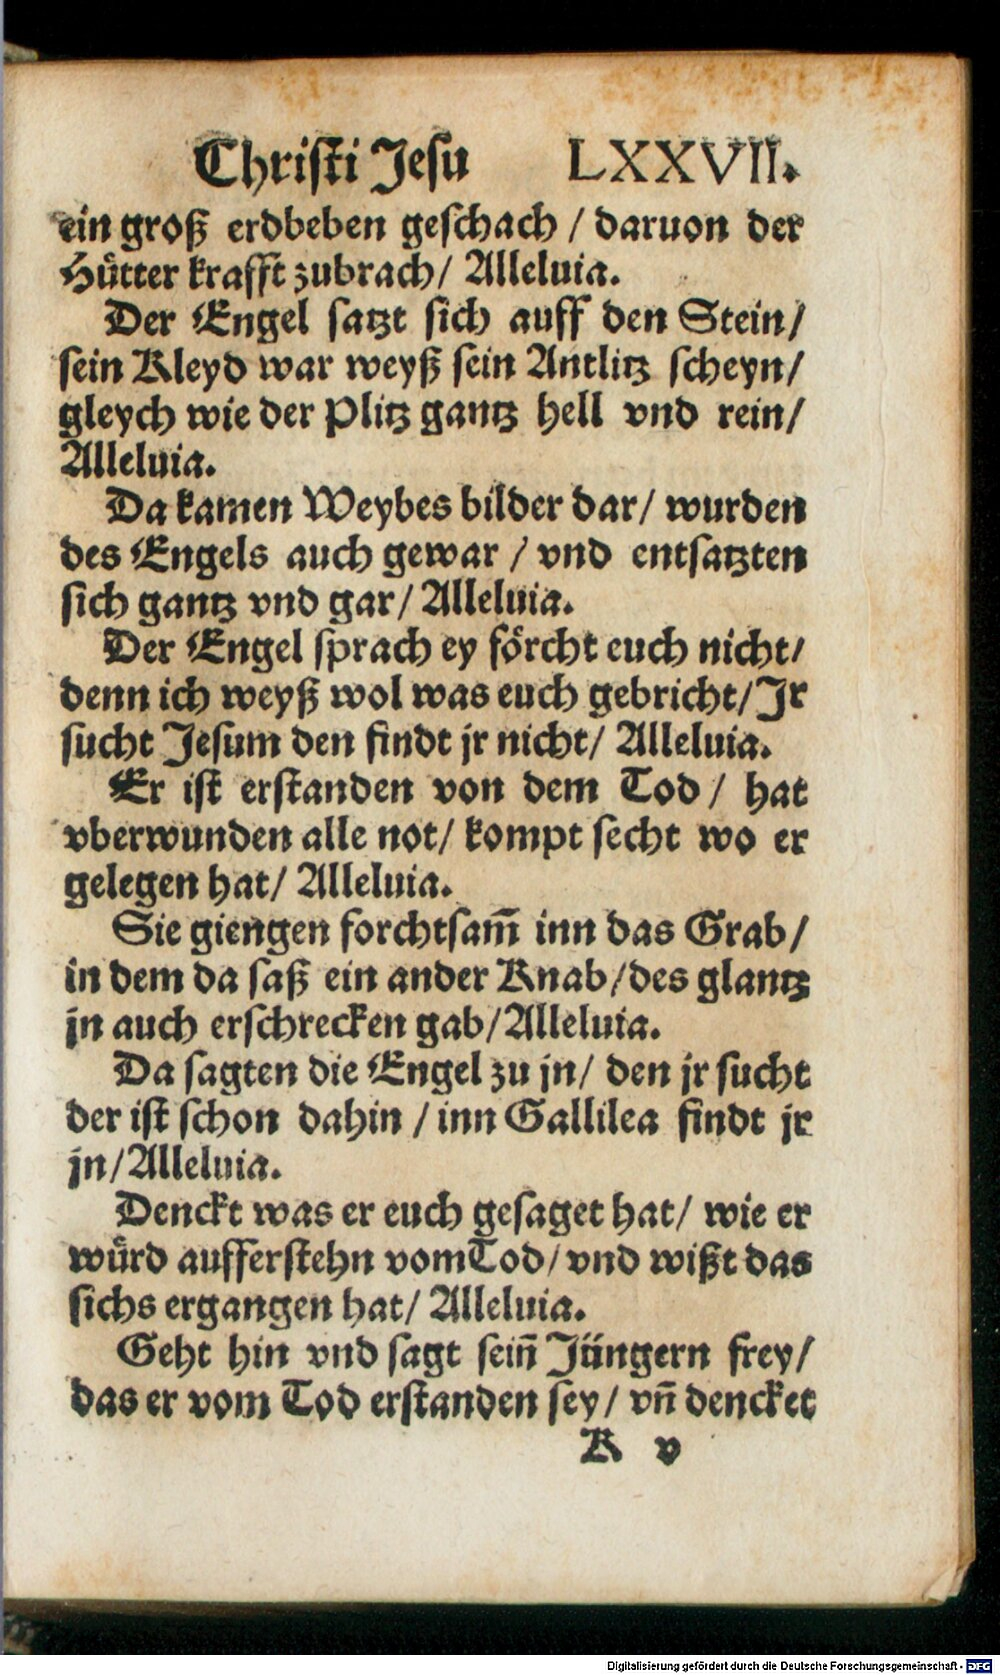 Christi Jesu LXXVII.
ein groß erdbeben geschach / daruon der
Huͤtter krafft zubrach / Alleluia.
Der Engel satzt sich auff den Stein /
sein Kleyd war weyß sein Antlitz scheyn /
gleych wie der Plitz gantz hell vnd rein /
Alleluia.
Da kamen Weybes bilder dar / wurden
des Engels auch gewar / vnd entsatzten
sich gantz vnd gar / Alleluia.
Der Engel sprach ey foͤrcht euch nicht /
denn ich weyß wol was euch gebricht / Jr
sucht Jesum den findt jr nicht / Alleluia.
Er ist erstanden von dem Tod / hat
vberwunden alle not / kompt secht wo er
gelegen hat / Alleluia.
Sie giengen forchtsam̄ inn das Grab /
in dem da saß ein ander Knab / des glantz
jn auch erschrecken gab / Alleluia.
Da sagten die Engel zu jn / den jr sucht
der ist schon dahin / inn Gallilea findt jr
jn / Alleluia.
Denckt was er euch gesaget hat / wie er
wuͤrd aufferstehn vom Tod / vnd wißt das
sichs ergangen hat / Alleluia.
Geht hin vnd sagt sein̄ Jüngern frey /
das er vom Tod erstanden sey / vn̄ dencket
K v
Digitalisierung gefördert durch die Deutsche Forschungsgemeinschaft - DFG